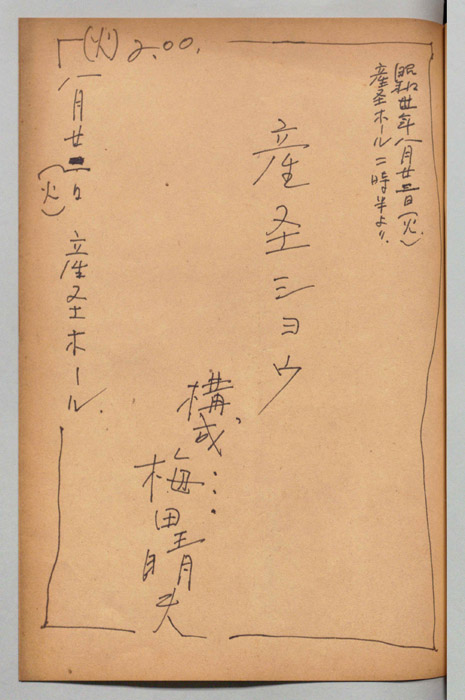 昭和卅年八月廿三日(火.)
産圣ホール二時半より.
産圣ショウ
構成…
梅田晴夫
(火) 2.00.
八月廿三日 産圣ホール.
(火)